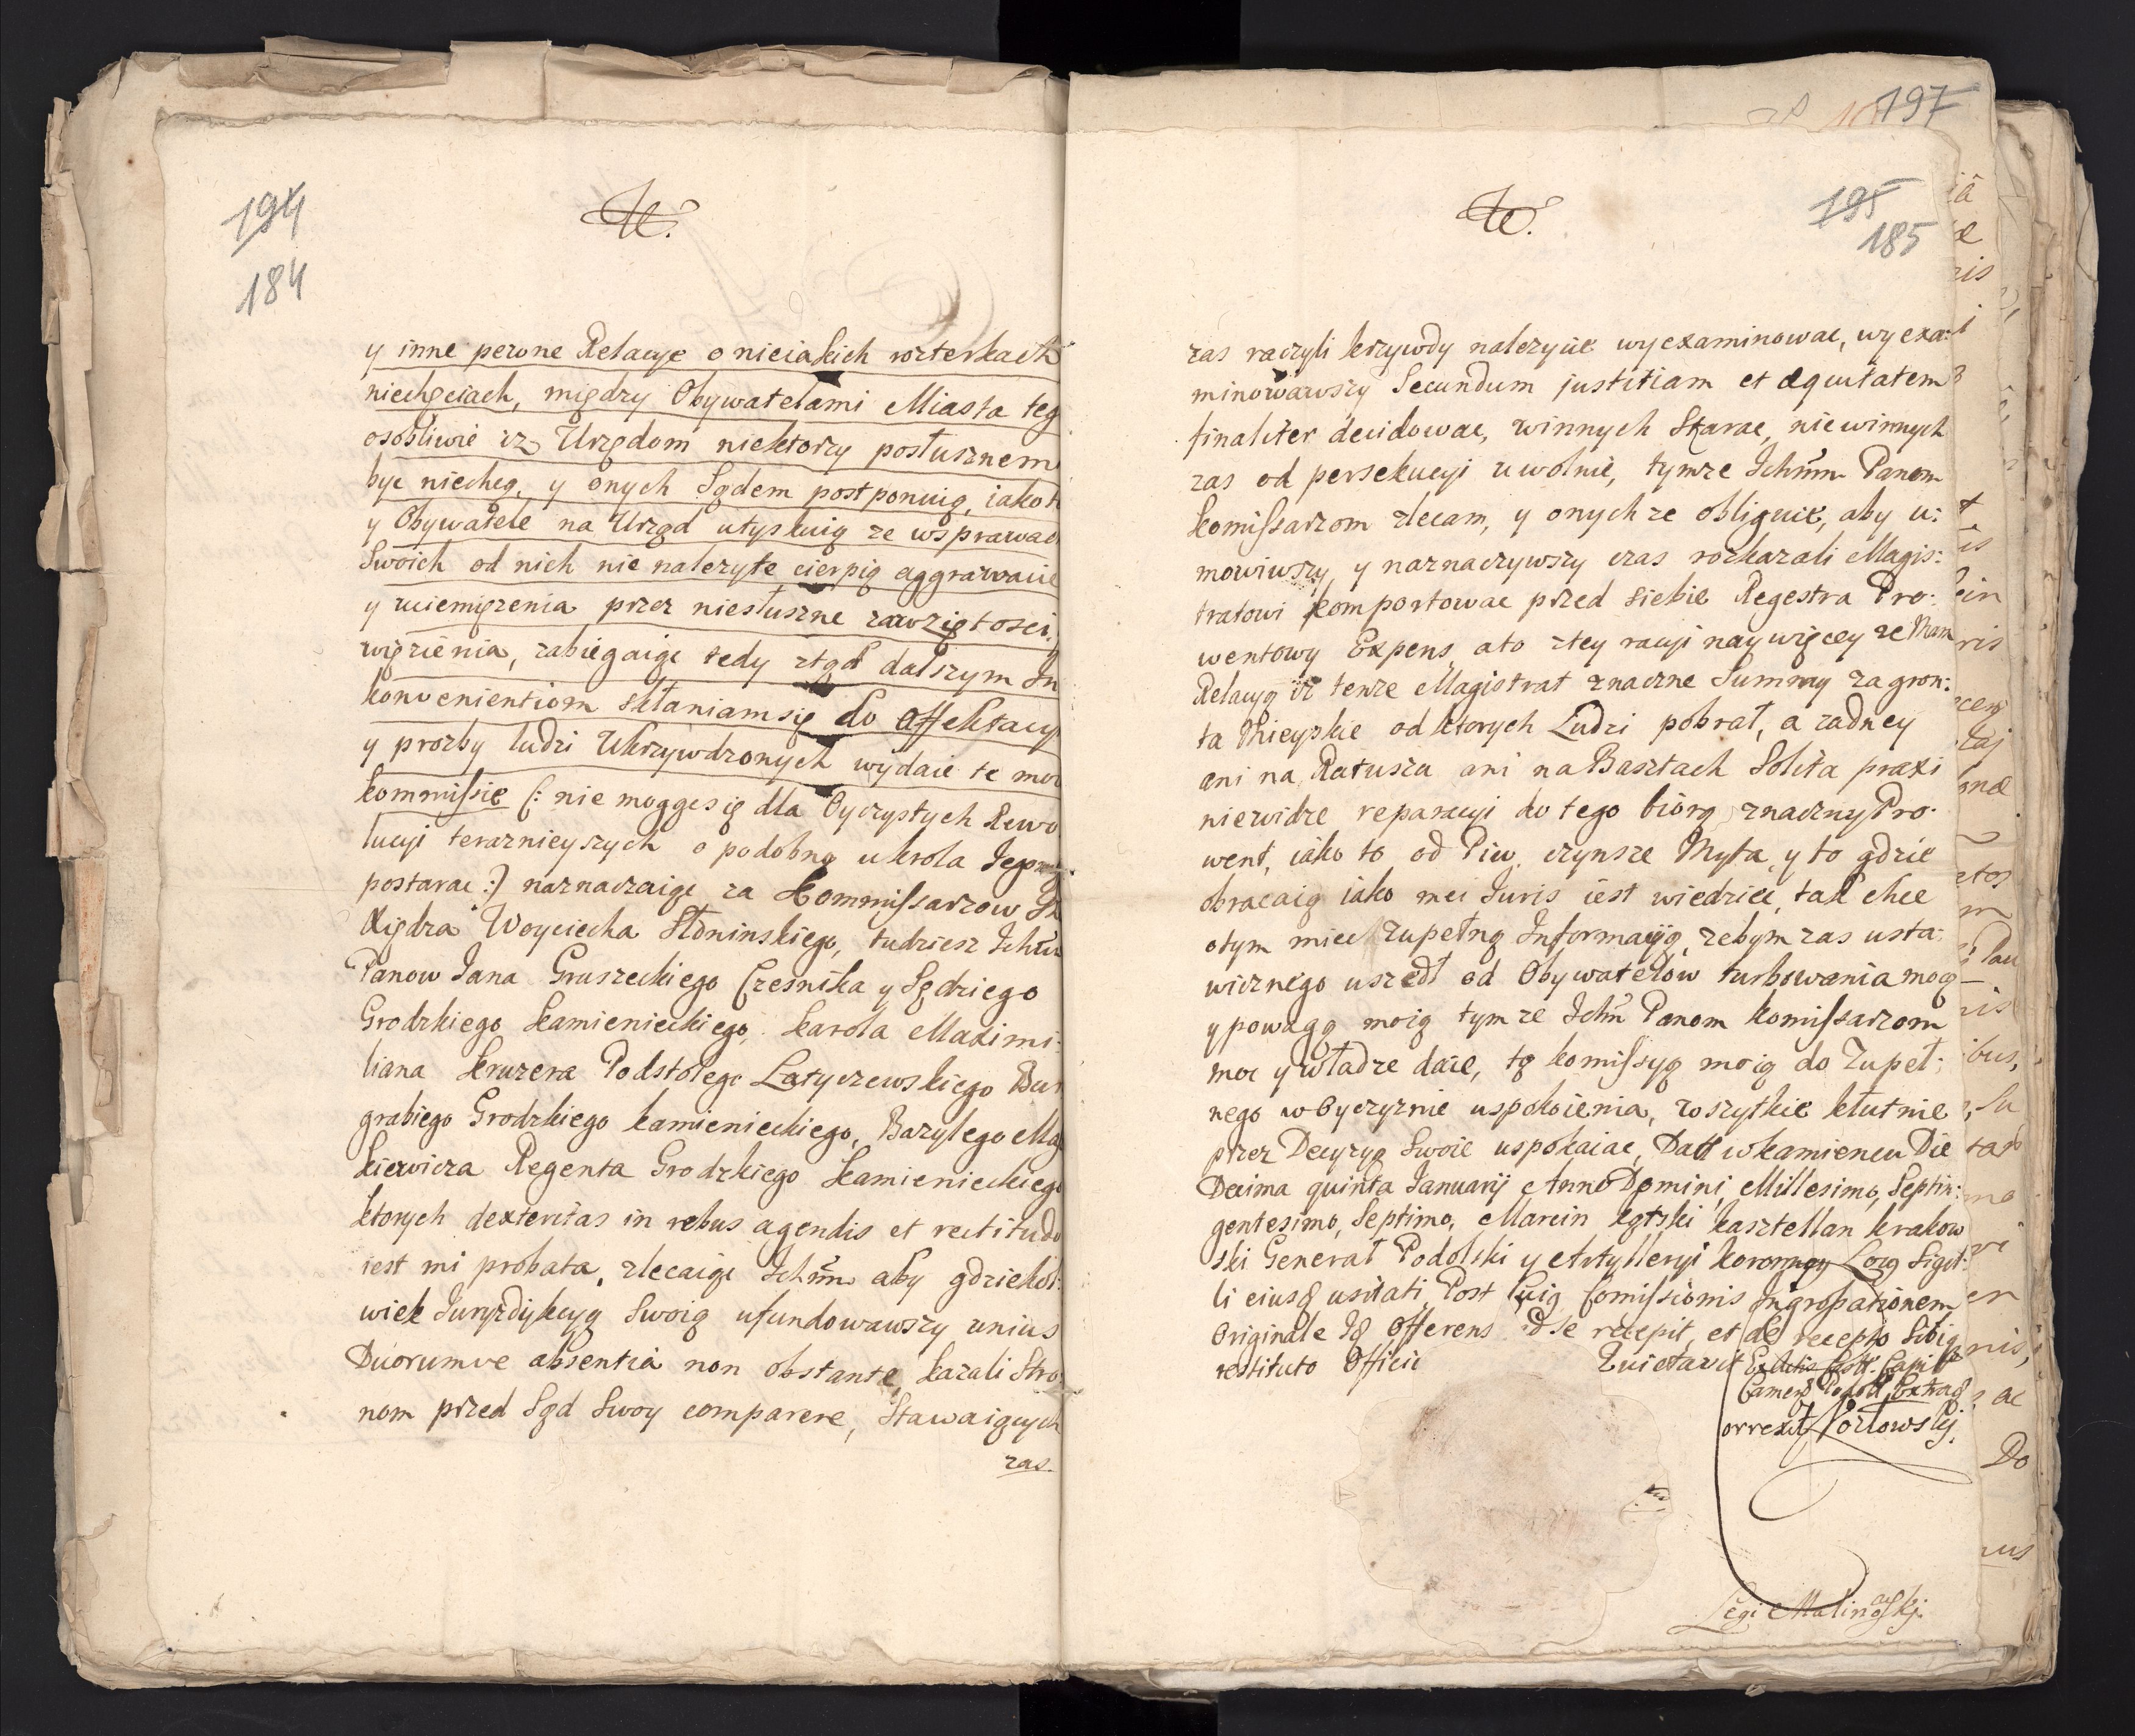 194
184
y inne pewne Relacye o nieiakich rozterkach
niechęciach, między Obywatelami Miasta teg
osobliwie iz Urzędom niektorzy posłusznem
byc niechcą, y onych Sądem postponuią, iako t
y Obywatele na Urząd utyskuią ze wsprawac
Swoich od nich nie nalezyte cierpią aggrawacie
y uciemięzenia przez niesłuszne zawziętosci,
więzienia, zabiegaiąc tedy ztąd dalszym In
konvenientiom skłaniamsię do Affektacy
y prozby ludzi Ukrzywdzonych wydaię te moi
kommissię (: nie mogącsię dla Oyczystych Rewo
lucyi teraznieyszych o podobną u krola Jegm
postarac :) naznaczaiąc za Kommissarzow
Xiędza Woyciecha Słoninskiego, tudziesz Ichm
Panow Jana Gruszeckiego Czesnika y Sędziego
Grodzkiego Kamienieckiego, Karola Maximi:
liana Kruzera Podstolego Latyczewskiego Bur
grabiego Grodzkiego kamienieckiego, Bazylego Ma
kiewicza Regenta Grodzkiego Kamienieckiego
ktorych dexteritas in rebus agendis et rectitudo
iest mi probata, zlecaiąc Ichm aby gdziekol:
wiek Juryzdykcyą Swoią ufundowawszy unius
Duorumve absentia non obstante, kazali Stro
nom przed Sąd Swoy comparere, Stawaiących
zas
197
195
185
zas raczyli krzywdy nalezycie wyexaminowac, wyexa:
minowawszy Secundum justitiam et æquitatem
finaliter decidowac, winnych Skarac, niewinnych
zas od persekucyi uwolnic, tymze Ichmm Panom
Komissarzom zlecam, y onych ze obliguię, aby u:
mowiwszy y naznaczywszy czas rozkazali Magis:
tratowi komportowac przed siebie Regestra Pro:
wentowy Expens, ato ztey racyi naywięcey ze Mam
Relacyą iz tenze Magistrat znaczne Summy za gron:
ta Mieyskie od ktorych Ludzi pobrał, a zadney
ani na Ratusza ani na Basztach Solita praxi
niewidze reparacyi do tego biorą znaczny Pro:
went, iako to od Piw, czynsze Myta, y to gdzie
obracaią iako mei Juris iest wiedziec, tak chce
otym miec zupełną Informacyją, zebym zas usta:
wicznego uszedł od Obywatelow turbowania mocą
y powagą moią tym ze Ichm Panom Komissarzom
moc y władze daię, tą komissyą moią do Zupeł:
nego w Oyczyznie uspokoienia, wszytkie kłutnie
przez Decyzyą Swoię uspokaiac, Datt w kamiencu Die
Decima quinta Januarij Anno Domini Millesimo, Septin:
gentesimo, Septimo, Marcin Kątski kasztellan krakow
ski Generał Podolski y Artylleryi Koronney Locg Sigil:
li eiusq usitati, Post Comissionis Ingrossationem
Originale Offerens se recepit, et de recepto Sibiq
restituto Officii Quietavit Ex Actis Castr. Capit
Camen Podol Extrad
orrexit
Legi Malinowskj.